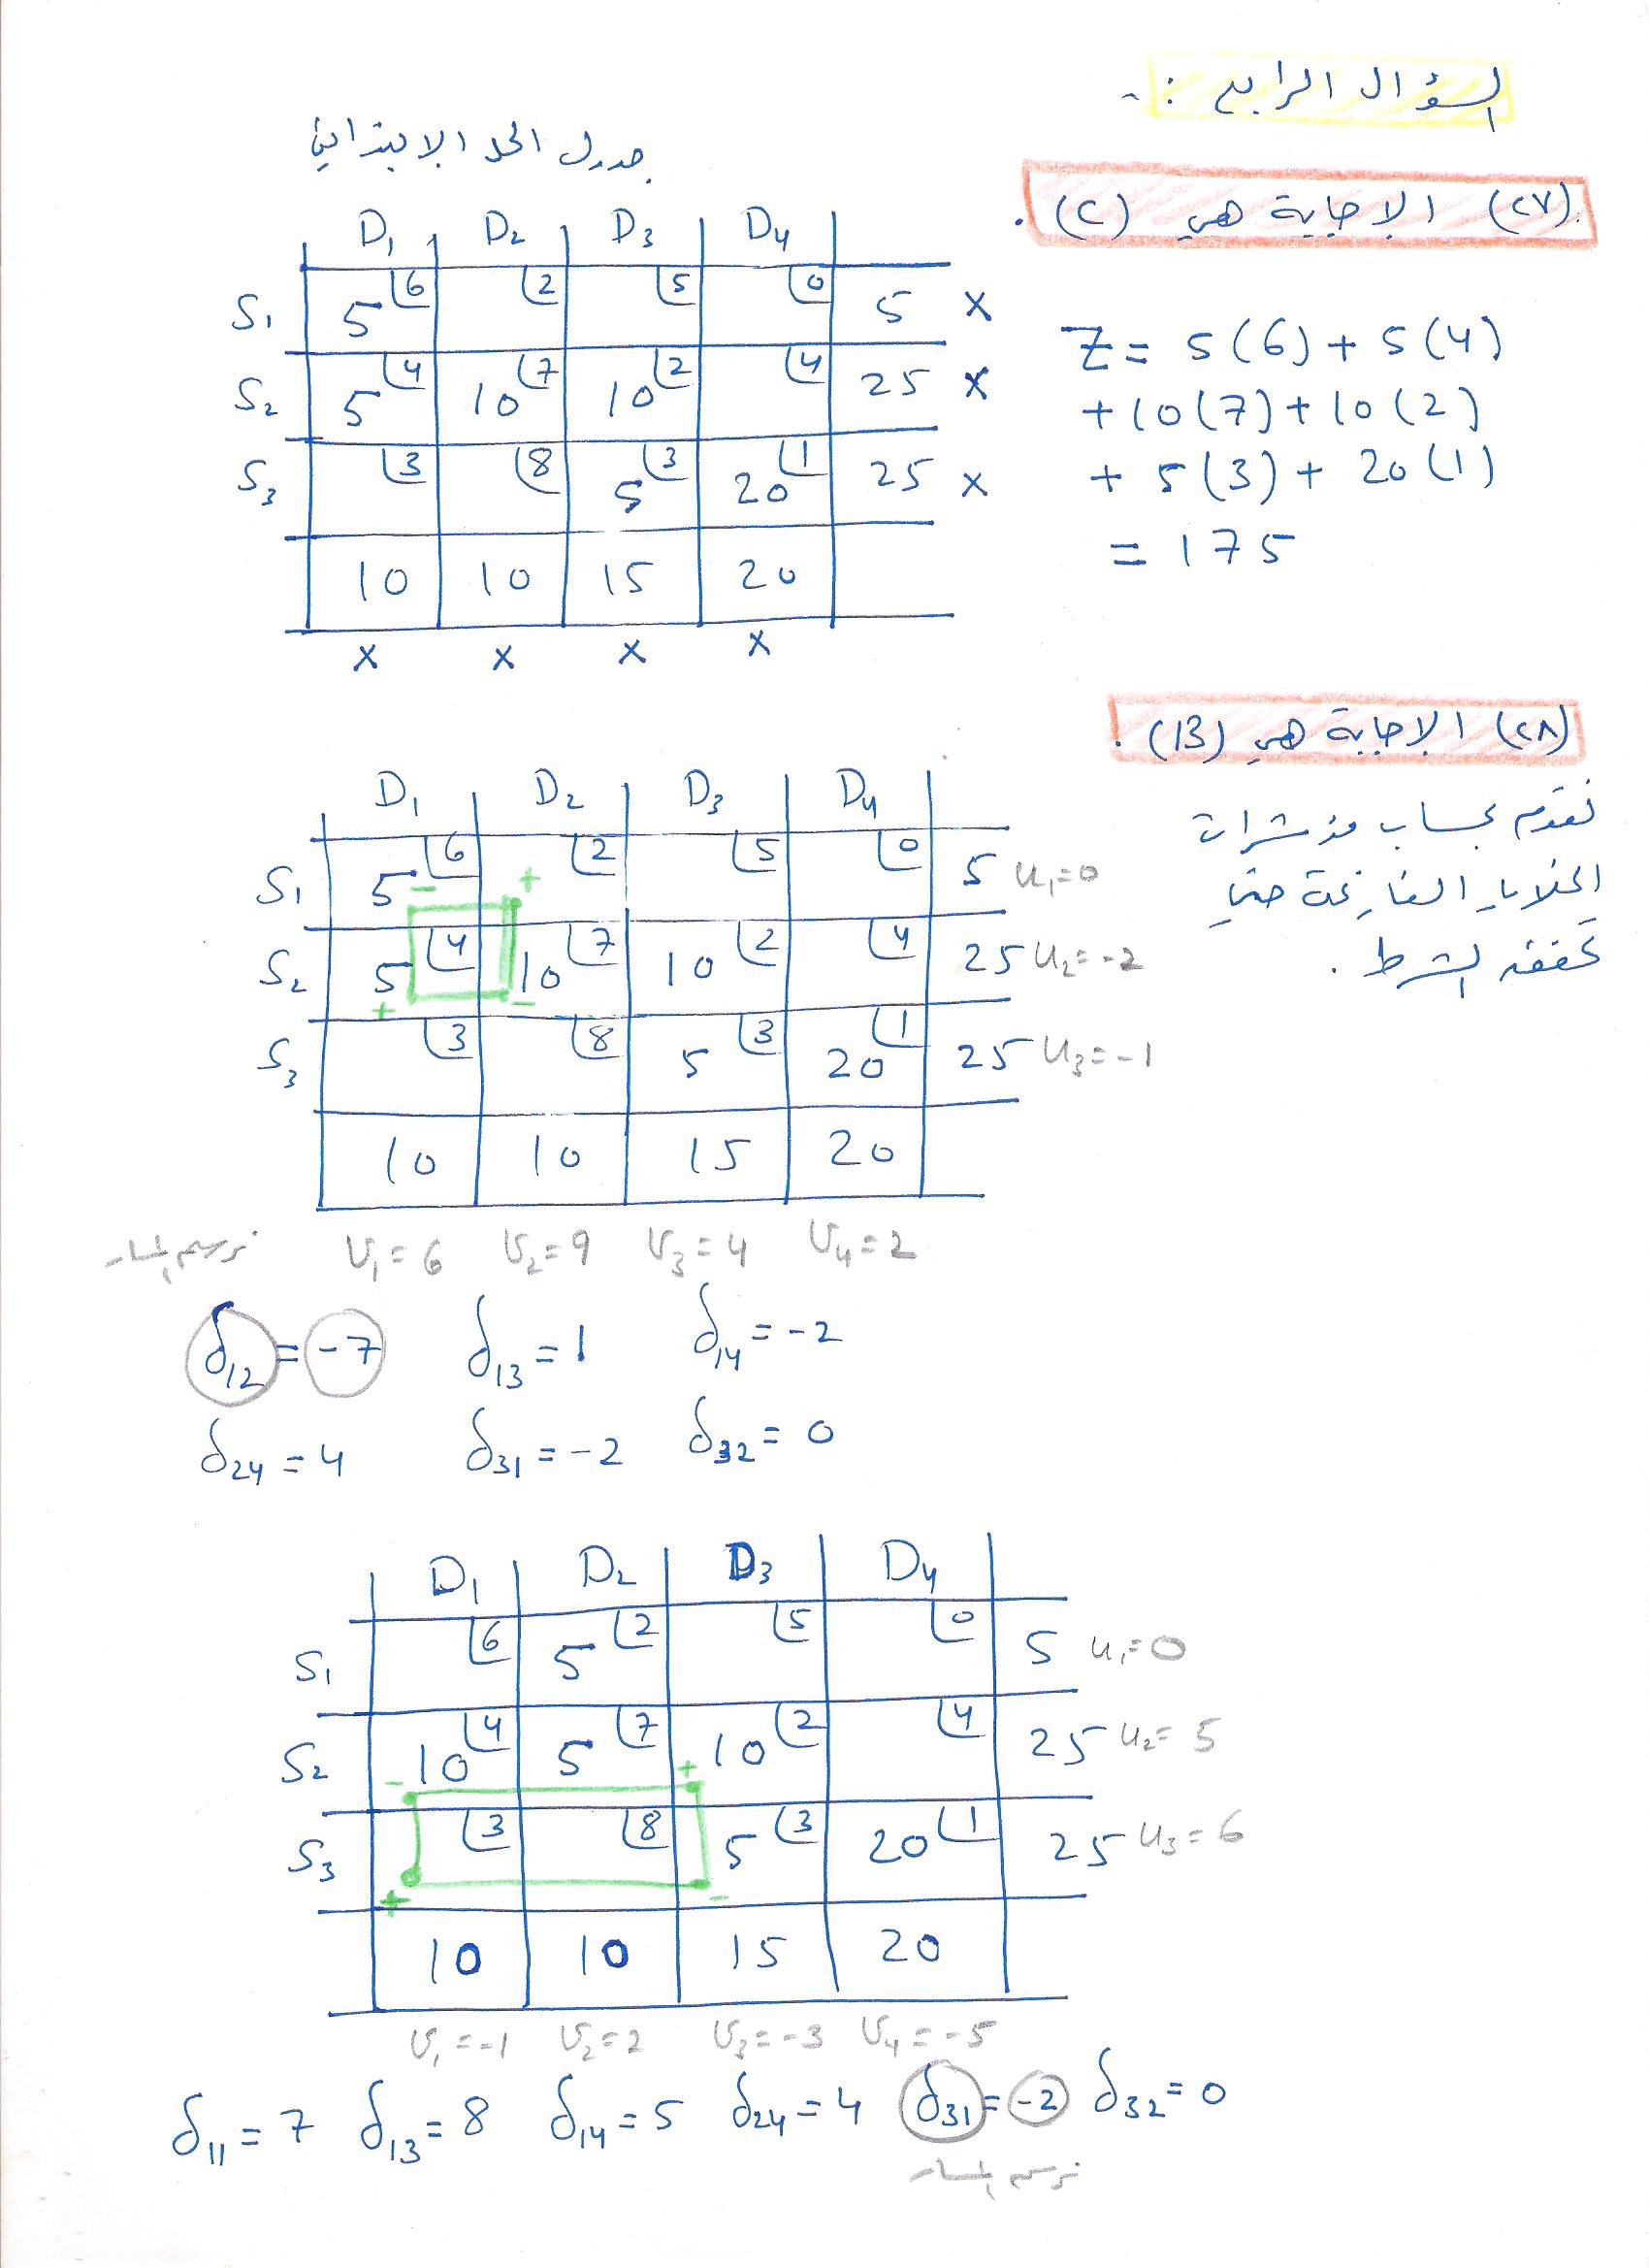 السؤال الرابع :-
(٢٧) الإجابة هي (C) .
جدول الحل الابتدائي
D₁ D₂ D₃ D₄
S₁ 5 6 2 5 0 5 x
S₂ 5 4 10 7 10 2 4 25 x
S₃ 3 8 5 3 20 1 25 x
10 10 15 20
x x x x
Z = 5(6) + 5(4)
+ 10(7) + 10(2)
+ 5(3) + 20(1)
= 175
(٢٨) الإجابة هي (B) .
نقوم بحساب مؤشرات
الخلايا الفارغة حتى
تحقق الشرط .
D₁ D₂ D₃ D₄
S₁ 5 6 - + 2 5 0 5 u₁=0
S₂ 5 4 + 10 7 - 10 2 4 25 u₂=-2
S₃ 3 8 5 3 20 1 25 u₃=-1
10 10 15 20
نرسم المسار V₁=6 V₂=9 V₃=4 V₄=2
δ₁₂ = -7 δ₁₃ = 1 δ₁₄ = -2
δ₂₄ = 4 δ₃₁ = -2 δ₃₂ = 0
D₁ D₂ D₃ D₄
S₁ 6 5 2 5 0 5 u₁=0
S₂ 10 4 - 5 7 10 2 + 4 25 u₂=5
S₃ 3 + 8 5 3 - 20 1 25 u₃=6
10 10 15 20
V₁=-1 V₂=2 V₃=-3 V₄=-5
δ₁₁ = 7 δ₁₃ = 8 δ₁₄ = 5 δ₂₄ = 4 δ₃₁ = -2 δ₃₂ = 0
نرسم المسار